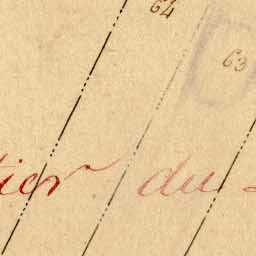 64
63
tier du